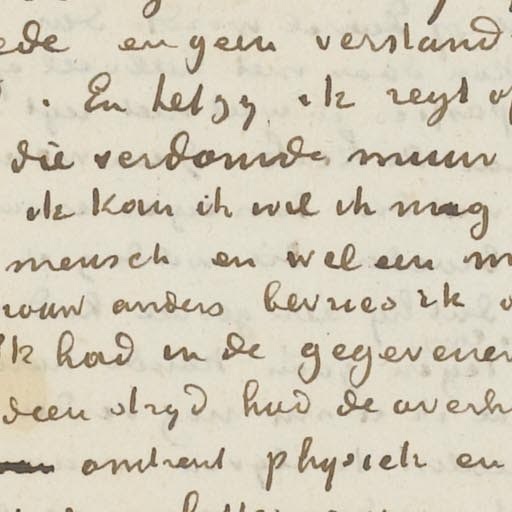 ede en geen verstand
. En het zy ik zegt of
die verdomde muur
ik kan ik wil ik mag
mensch en wel een m
rouw anders bevries ik o
ik had in de gegevenen
deen stryd had de overh
omtrent physiek en